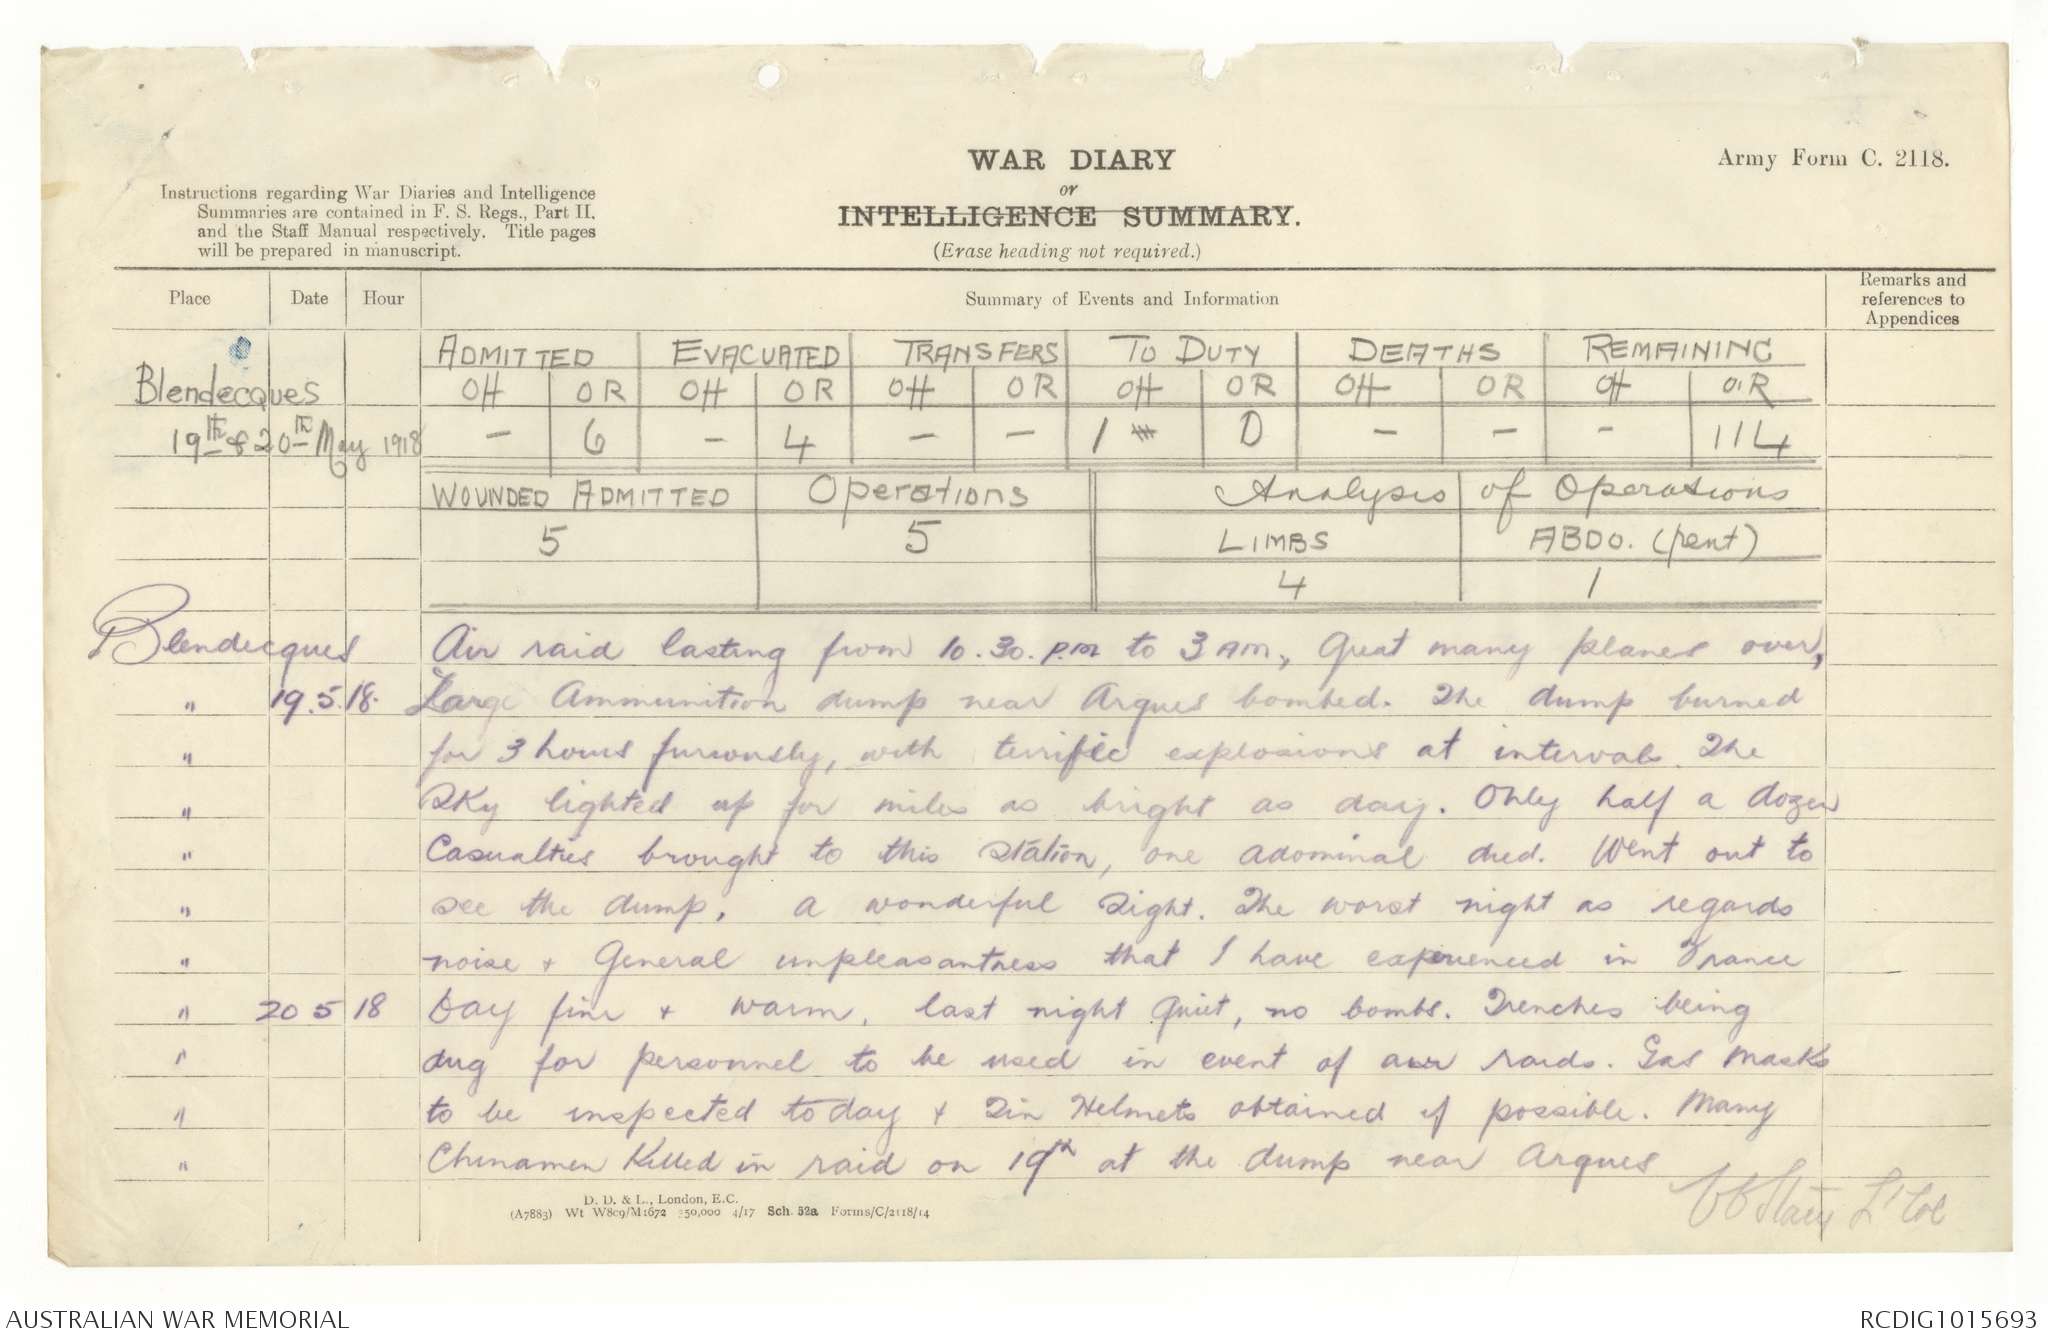 WAR DIARY
or
INTELLIGENCE SUMMARY.
(Erase heading not required.)
Army Form C. 2118.
Instructions regarding War Diaries and Intelligence
Summaries are contained in F. S. Regs., Part II.
and the Staff Manual respectively. Title pages
will be prepared in manuscript.
Place Date Hour Summary of Events and Information Remarks and references to Appendices
ADMITTED EVACUATED TRANSFERS TO DUTY DEATHS REMAINING
Blendecques OH OR OH OR OH OR OH OR OH OR OH O.R
19th & 20th May 1918 - 6 - 4 - - 1 0 - - - 114
WOUNDED ADMITTED Operations Analysis of Operations
5 5 LIMBS ABDO. (pent)
4 1
Blendecques Air raid lasting from 10.30. P.M to 3 AM., Great many planes over,
" 19.5.18. Large Ammunition dump near Arques bombed. The dump burned
" for 3 hours furiously, with terrific explosions at intervals. The
" Sky lighted up for miles as bright as day. Only half a dozen
" Casualties brought to this station, one adominal died. Went out to
" see the dump, a wonderful sight. The worst night as regards
" noise + General unpleasantness that I have experienced in France
" 20 5 18 Day fine + warm, last night quiet, no bombs. Trenches being
" dug for personnel to be used in event of air raids. Gas Masks
" to be inspected today + Tin Helmets obtained if possible. Many
" Chinamen Killed in raid on 19th at the dump near Arques
Lt Col
D. D. & L., London, E.C.
(A7883) Wt W809/M1672 350,000 4/17 Sch. 52a Forms/C/2118/14
AUSTRALIAN WAR MEMORIAL
RCDIG1015693